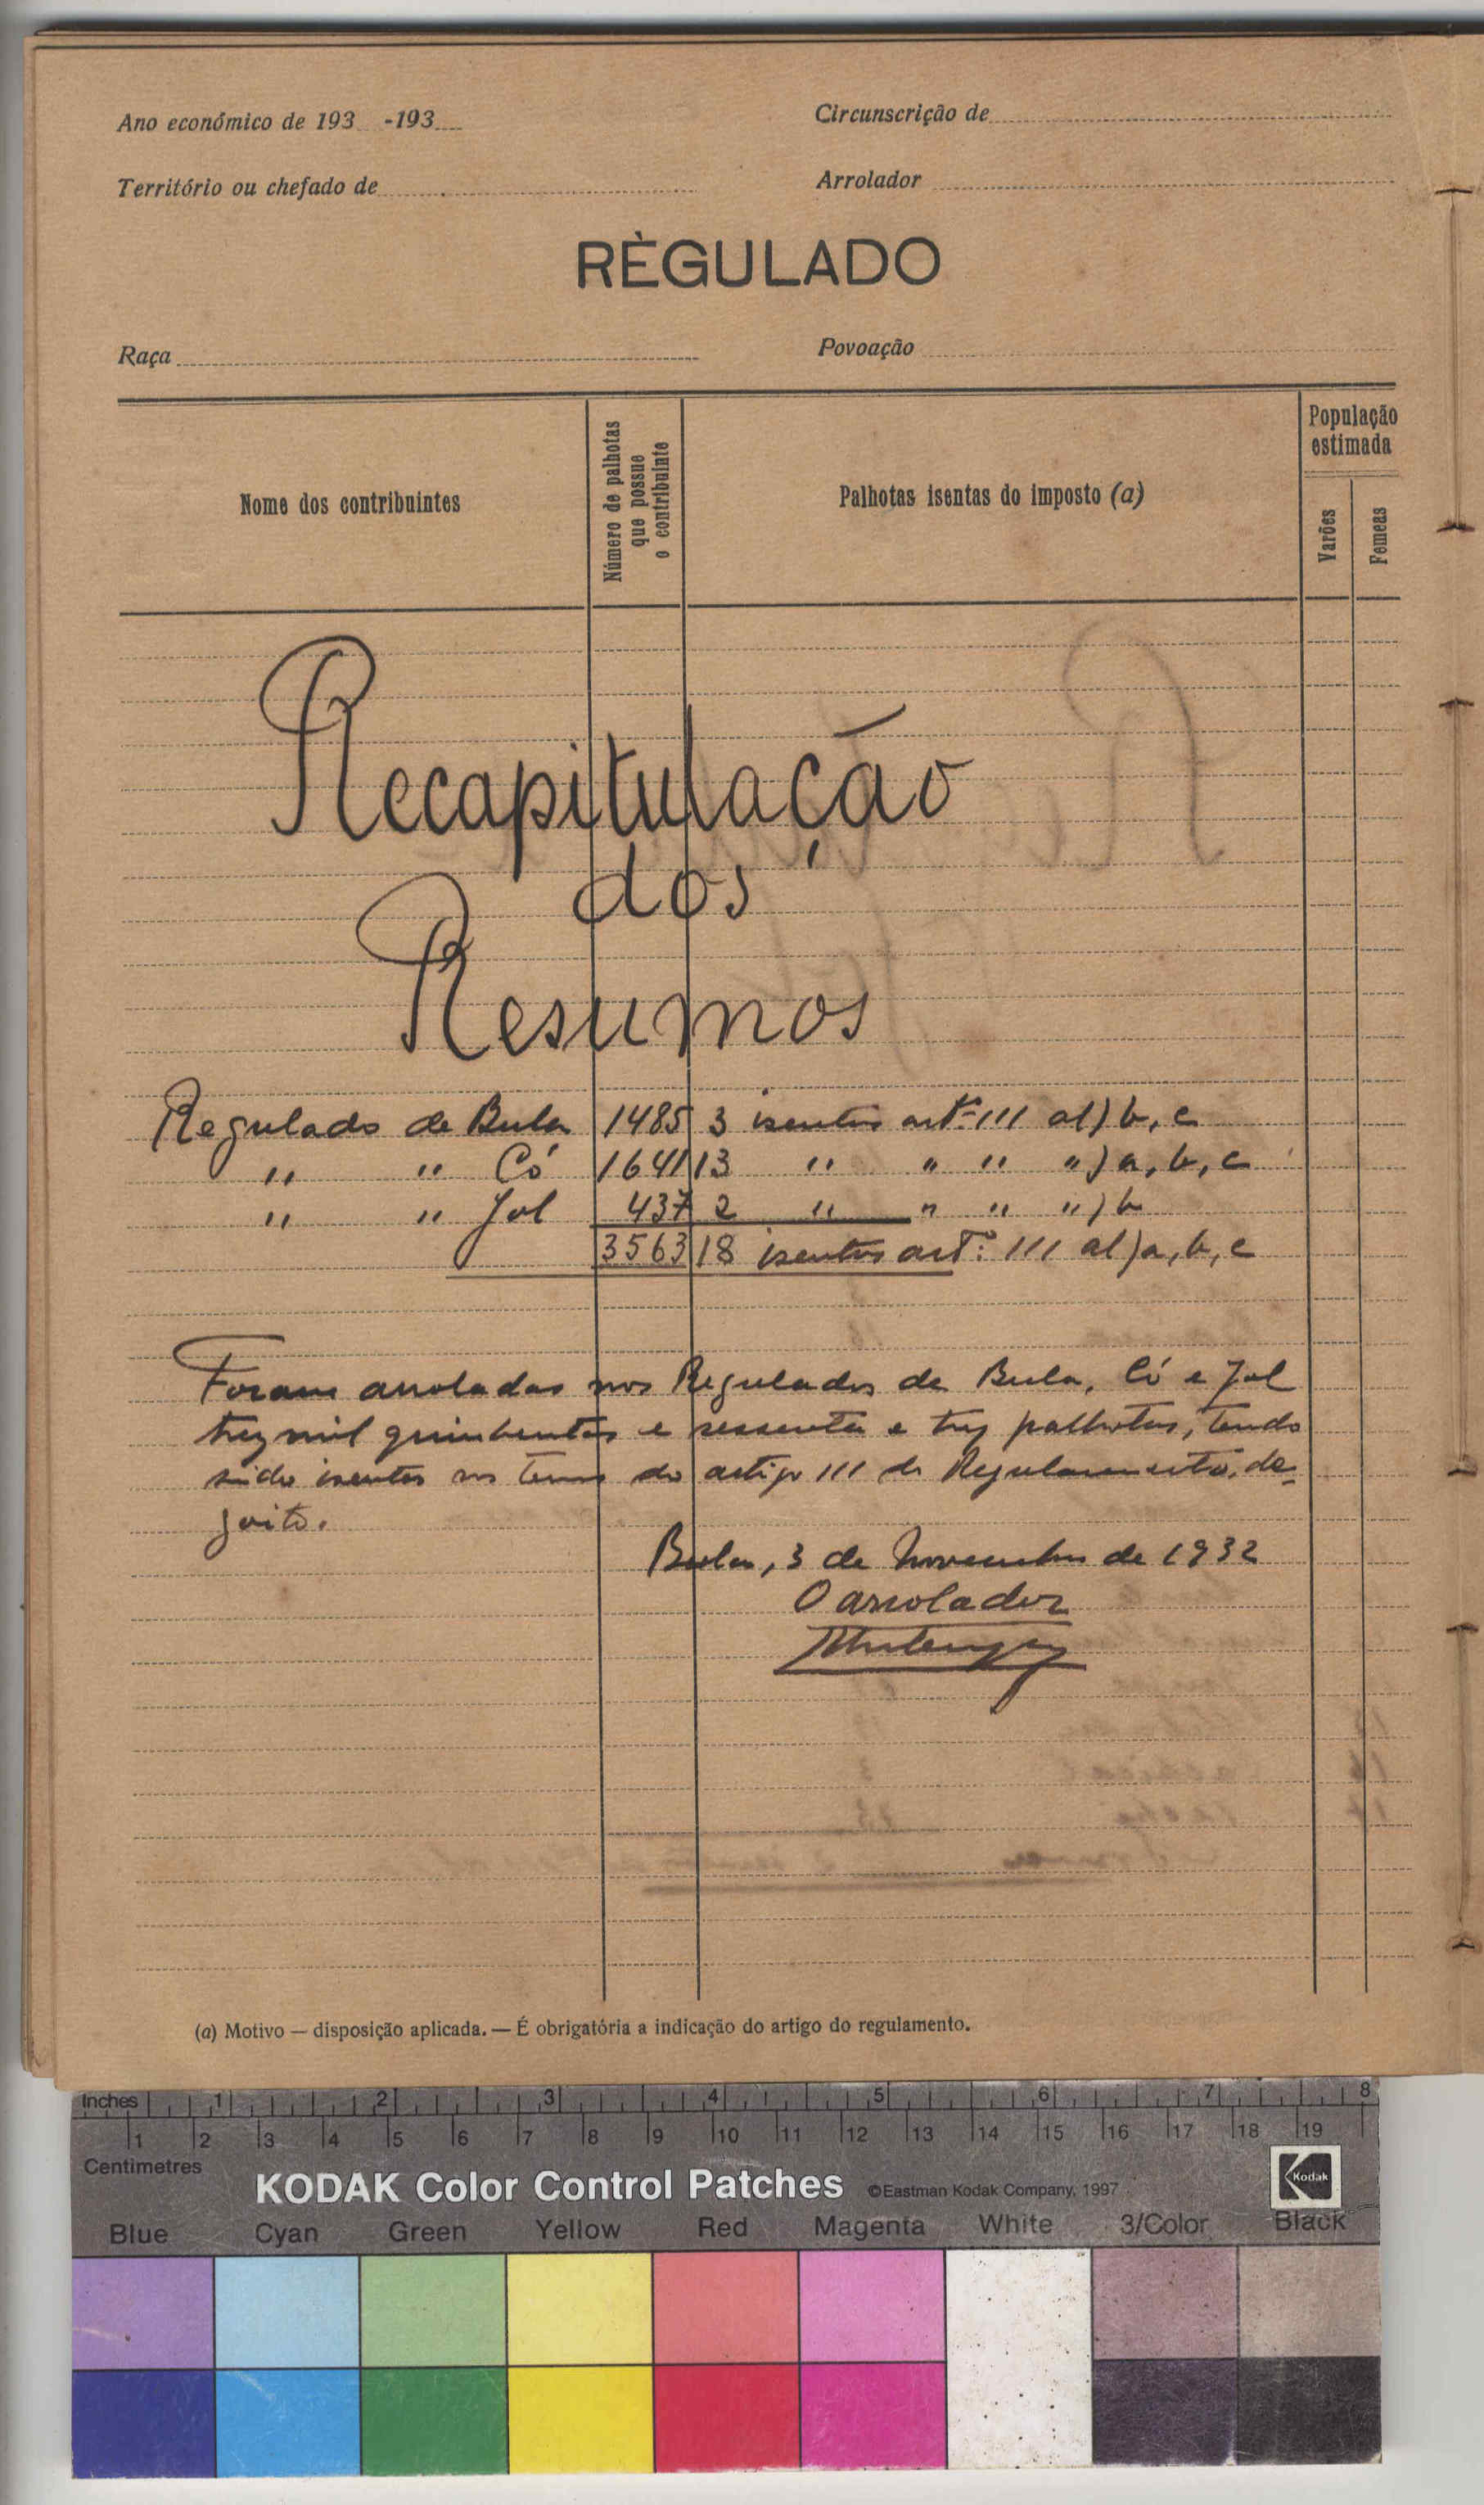 Ano económico de 193 -193
Circunscrição de
Território ou chefado de
Arrolador
RÈGULADO
Raça
Povoação
Nome dos contribuintes
Número de palhotas
que possue
o contribuinte
Palhotas isentas do imposto (a)
População
estimada
Varões
Femeas
Recapitulação
dos
Resumos
Regulado de Bula 1485 3 isentos artº 111 al) b, c
" " Có 1641 13 " " " ") a, b, c
" " Jol 437 2 " " " ") b
3563 18 isentos artº: 111 al) a, b, c
Foram arroladas nos Regulados de Bula, Có e Jol
trez mil quinhentas e sessenta e trez palhotas, tendo
sido isentas nos termos do artigo 111 do Regulamento, de-
zoito.
Bula, 3 de Novembro de 1932
O arrolador
(a) Motivo — disposição aplicada. — É obrigatória a indicação do artigo do regulamento.
Inches 1 2 3 4 5 6 7 8
1 2 3 4 5 6 7 8 9 10 11 12 13 14 15 16 17 18 19
Centimetres
KODAK Color Control Patches ©Eastman Kodak Company, 1997 Kodak
Blue Cyan Green Yellow Red Magenta White 3/Color Black